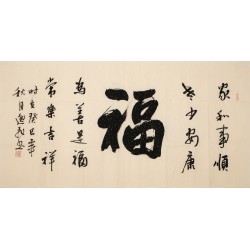 家和事順
老少安康
福
為善是福
常樂吉祥
時在癸巳年
秋月